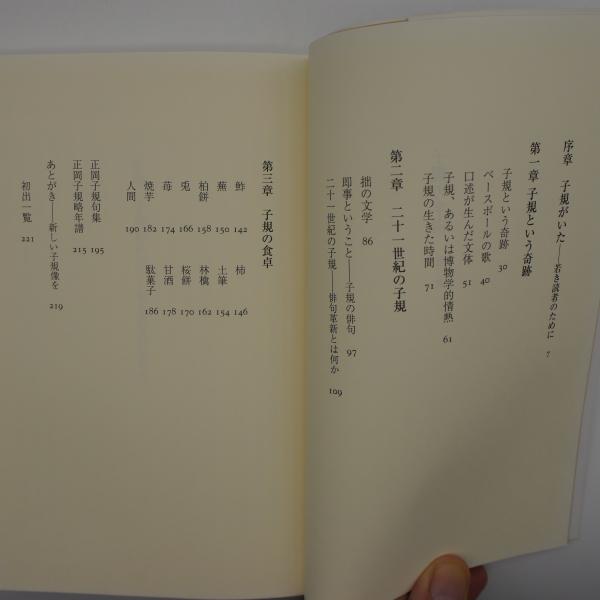 序章　子規がいた——若き読者のために　7
第一章　子規という奇跡
子規という奇跡　30
ベースボールの歌　40
口述が生んだ文体　51
子規、あるいは博物学的情熱　61
子規の生きた時間　71
第二章　二十一世紀の子規
拙の文学　86
即事ということ——子規の俳句　97
二十一世紀の子規——俳句革新とは何か　109
第三章　子規の食卓
鮓　142　柿　146
蕪　150　土筆　154
柏餅　158　林檎　162
兎　166　桜餅　170
苺　174　甘酒　178
焼芋　182　駄菓子　186
人間　190
正岡子規句集　195
正岡子規略年譜　215
あとがき——新しい子規像を　219
初出一覧　221